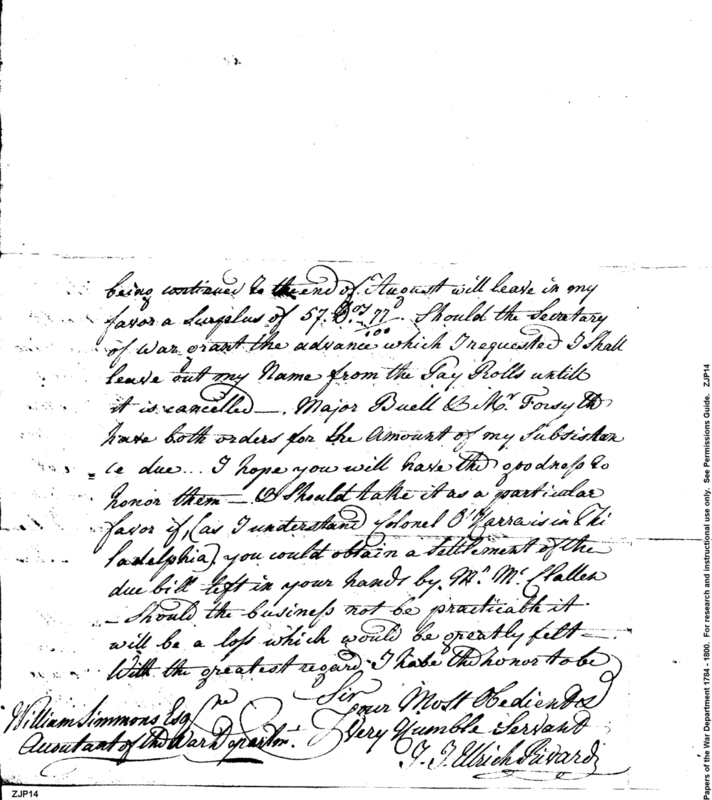 being continued to the end of August will leave in my
favor a Surplus of 57. Drs 77/100. Should the Secretary
of War grant the advance which I requested I Shall
leave out my Name from the Pay Rolls untill
it is cancelled —. Major Buell & Mr. Forsyth
have both orders for the Amount of my Subsisten
ce due... I hope you will have the goodness to
honor them — & Should take it as a particular
favor if, (as I understand Colonel O'Harra is in Phi
ladelphia) you could obtain a Settlement of the
due bill left in your hands by Mr. Mc
— Should the business not be practicable it
will be a loss which would be greatly felt —
With the greatest regard I have the honor to be
Sir
your Most Obedient &
Very Humble Servant
William Simmons Esqre
Accountant of the War Departmt.
J. J. Ulrich Rivardi
ZJP14
Papers of the War Department 1784 - 1800. For research and instructional use only. See Permissions Guide. ZJP14